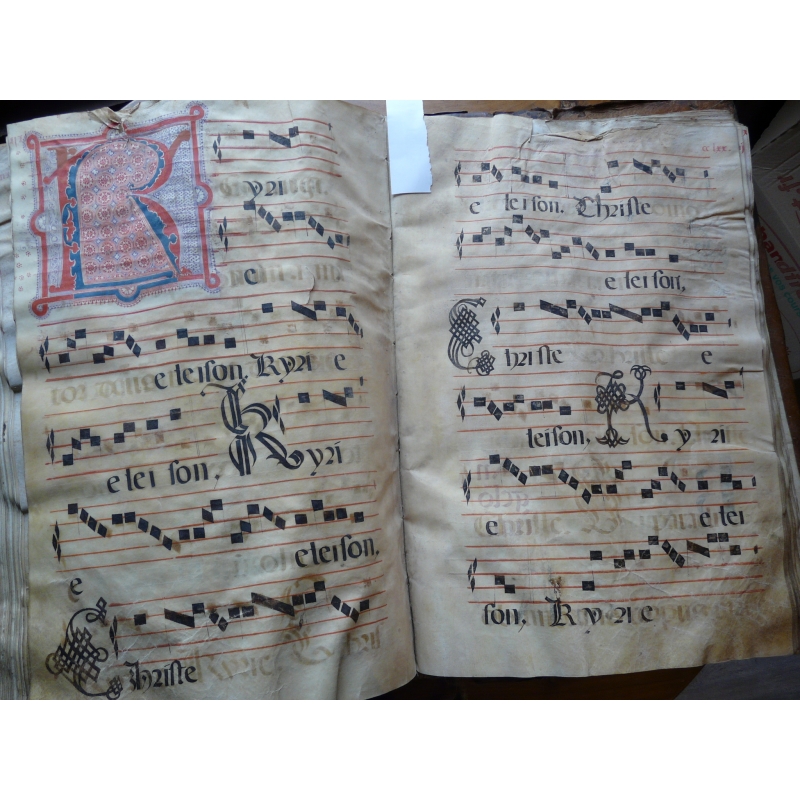 Kyri
e
eleison. Kyri e
e lei son, Kyri
eleison,
e
Christe
e leison. Christe
eleison,
Christe e
leison, Kyri
e elei
son, Kyrie